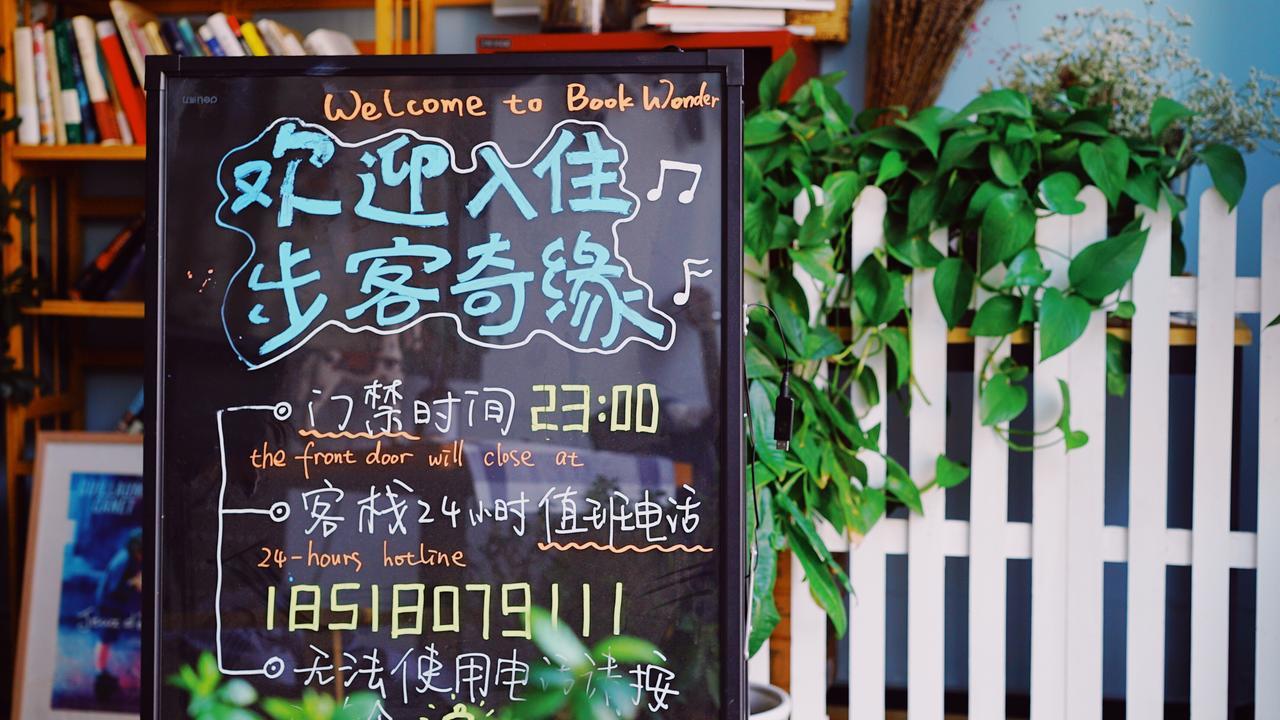 Welcome to Book Wonder
欢迎入住
步客奇缘
门禁时间 23:00
the front door will close at
客栈24小时值班电话
24-hours hotline
18518079111
无法使用电话请按